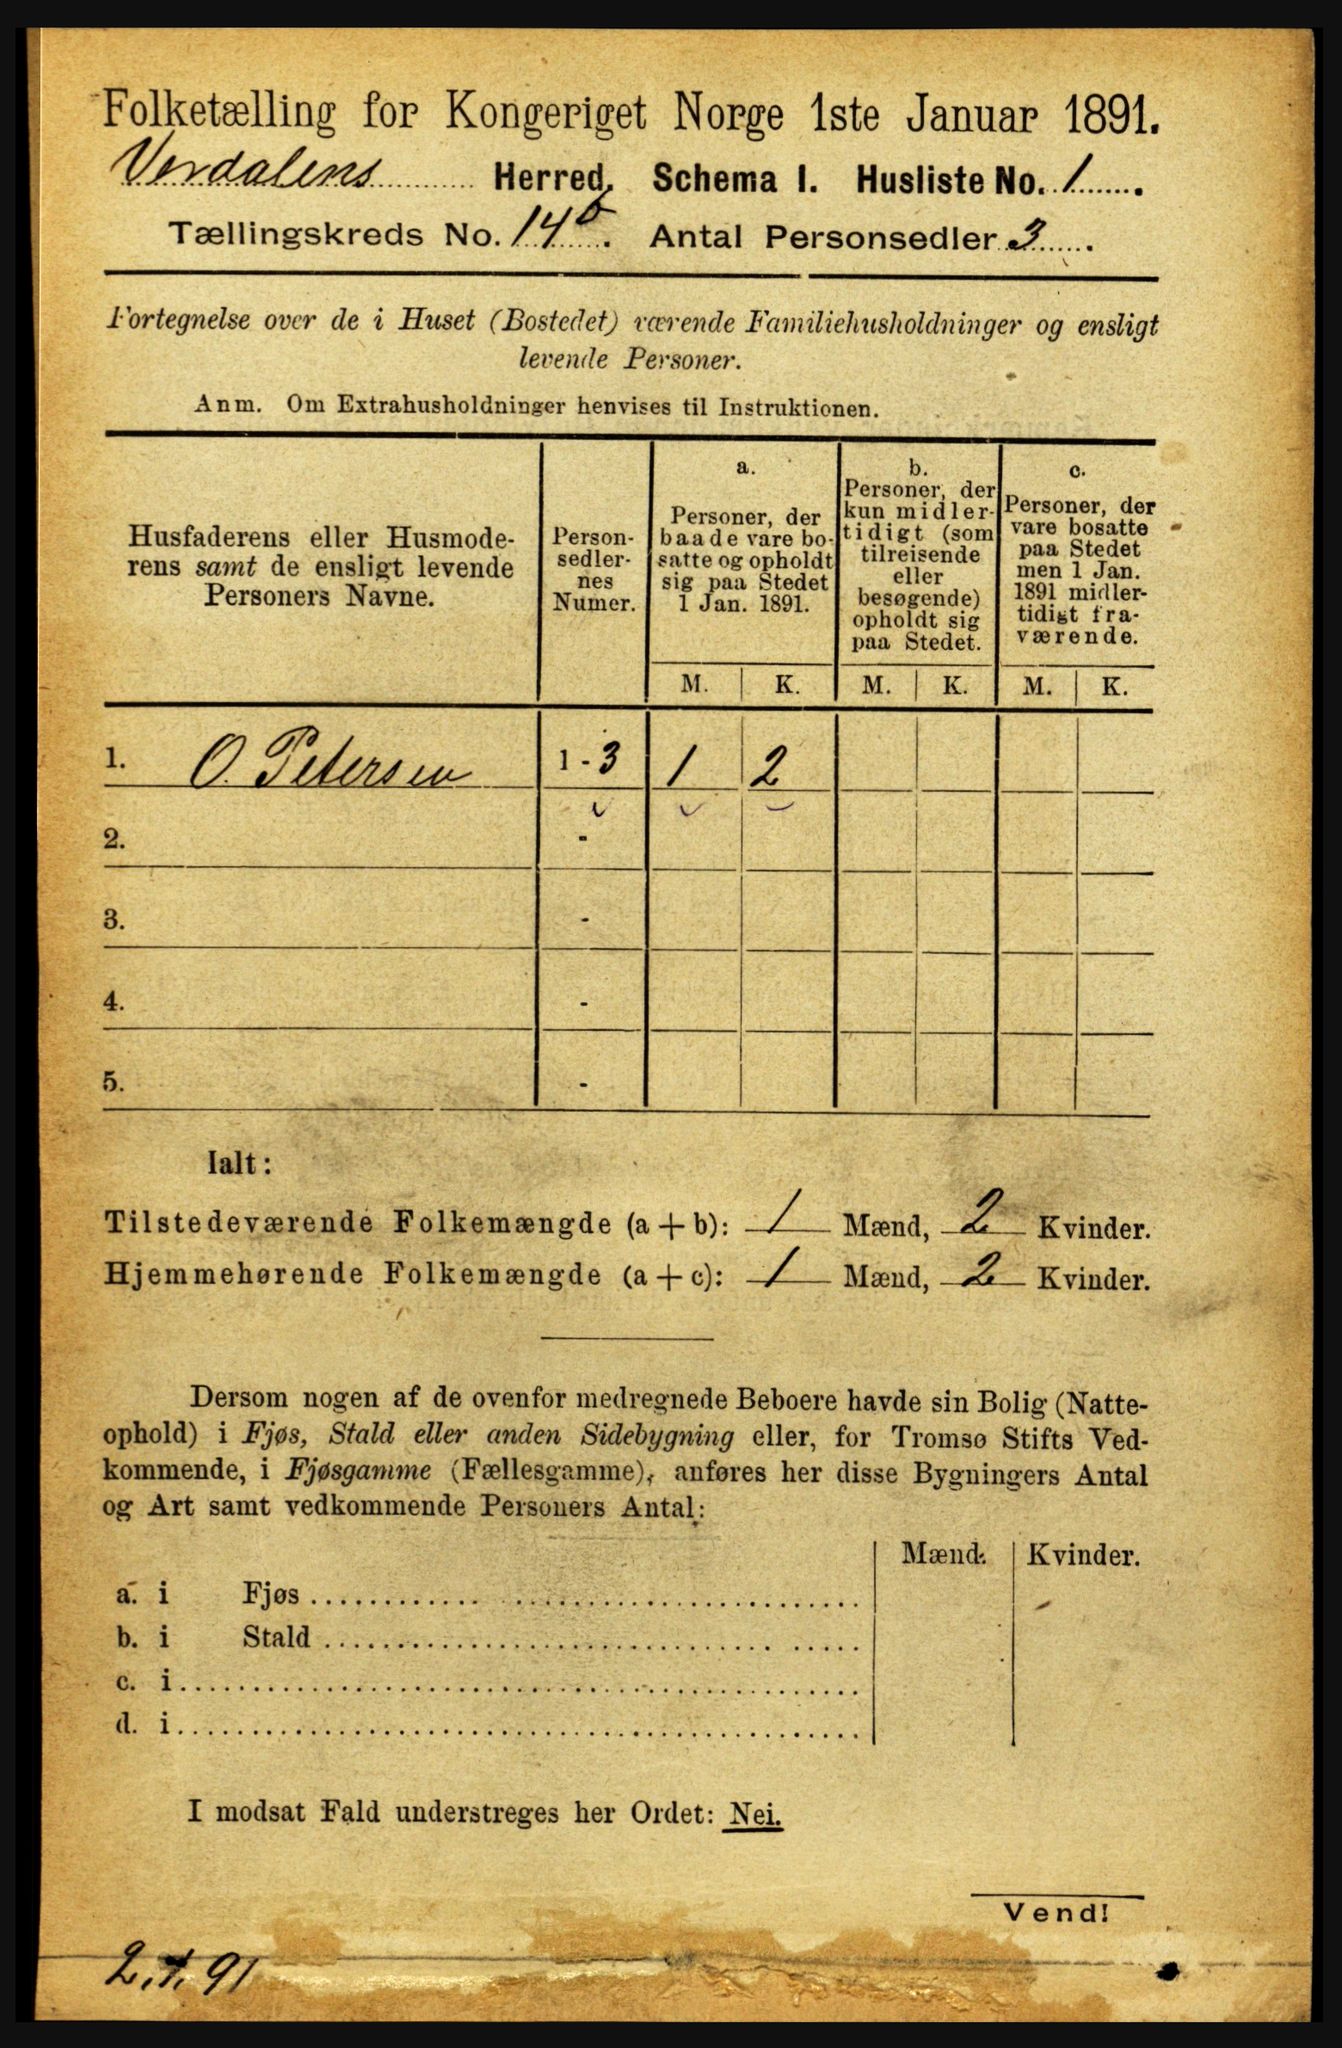 Folketælling for Kongeriget Norge 1ste Januar 1891.
Verdalens Herred. Schema I. Husliste No. 1.
Tællingskreds No. 14b. Antal Personsedler 3.
Fortegnelse over de i Huset (Bostedet) værende Familiehusholdninger og ensligt
levende Personer.
Anm. Om Extrahusholdninger henvises til Instruktionen.
Husfaderens eller Husmode-
rens samt de ensligt levende
Personers Navne.
Person-
sedler-
nes
Numer.
a.
Personer, der
baade vare bo-
satte og opholdt
sig paa Stedet
1 Jan. 1891.
b.
Personer, der
kun midler-
tidigt (som
tilreisende
eller
besøgende)
opholdt sig
paa Stedet.
c.
Personer, der
vare bosatte
paa Stedet
men 1 Jan.
1891 midler-
tidigt fra-
værende.
M. K. M. K. M. K.
1. O. Petersen 1-3 1 2
2. -
3. -
4. -
5. -
Ialt:
Tilstedeværende Folkemængde (a + b): 1 Mænd, 2 Kvinder.
Hjemmehørende Folkemængde (a + c): 1 Mænd, 2 Kvinder.
Dersom nogen af de ovenfor medregnede Beboere havde sin Bolig (Natte-
ophold) i Fjøs, Stald eller anden Sidebygning eller, for Tromsø Stifts Ved-
kommende, i Fjøsgamme (Fællesgamme), anføres her disse Bygningers Antal
og Art samt vedkommende Personers Antal:
Mænd. Kvinder.
a. i Fjøs
b. i Stald
c. i
d. i
I modsat Fald understreges her Ordet: Nei.
Vend!
2.1.91